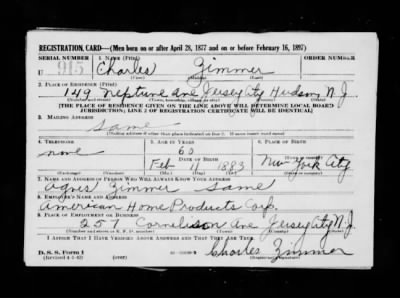 REGISTRATION CARD—(Men born on or after April 28, 1877 and on or before February 16, 1897)
SERIAL NUMBER 1. NAME (Print) ORDER NUMBER
U 915 Charles Zimmer
(First) (Middle) (Last)
2. PLACE OF RESIDENCE (Print)
149 Neptune Ave Jersey City Hudson N.J.
(Number and street) (Town, township, village, or city) (County) (State)
[THE PLACE OF RESIDENCE GIVEN ON THE LINE ABOVE WILL DETERMINE LOCAL BOARD
JURISDICTION; LINE 2 OF REGISTRATION CERTIFICATE WILL BE IDENTICAL]
3. MAILING ADDRESS
Same
[Mailing address if other than place indicated on line 2. If same insert word same]
4. TELEPHONE 5. AGE IN YEARS 6. PLACE OF BIRTH
none 60
DATE OF BIRTH
Feb 11 1883 New York City
7. NAME AND ADDRESS OF PERSON WHO WILL ALWAYS KNOW YOUR ADDRESS
Agnes Zimmer Same
8. EMPLOYER'S NAME AND ADDRESS
American Home Products Corp.
9. PLACE OF EMPLOYMENT OR BUSINESS
257 Cornelison Ave Jersey City N.J.
(Number and street or R. F. D. number) (Town) (County) (State)
I AFFIRM THAT I HAVE VERIFIED ABOVE ANSWERS AND THAT THEY ARE TRUE.
D. S. S. Form 1
(Revised 4-1-42) (over) Charles Zimmer